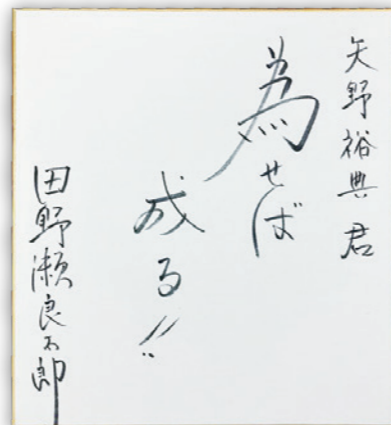 矢野裕典君
為せば
成る!!
田野瀬良太郎